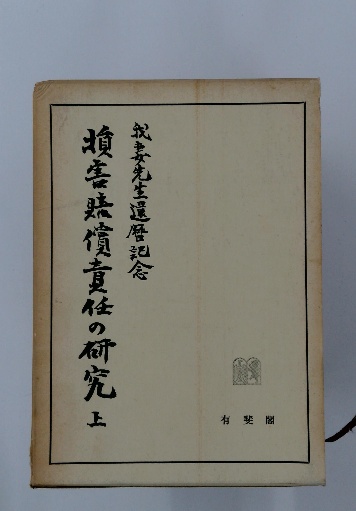 我妻先生還暦記念
損害賠償責任の研究 上
有斐閣